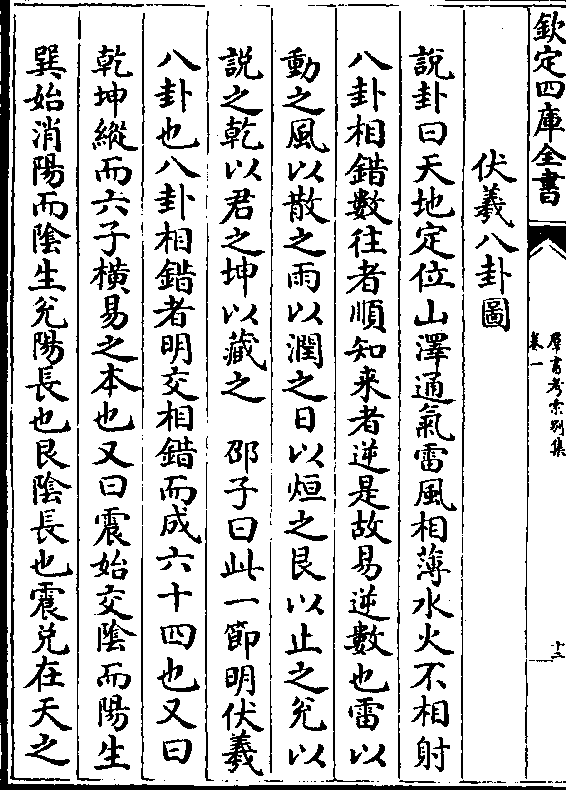 欽定四庫全書
羣書考索別集
卷一
十二
伏羲八卦圖
說卦曰天地定位山澤通氣雷風相薄水火不相射
八卦相錯數往者順知来者逆是故易逆數也雷以
動之風以散之雨以潤之日以烜之艮以止之兌以
説之乾以君之坤以藏之 邵子曰此一節明伏羲
八卦也八卦相錯者明交相錯而成六十四也又曰
乾坤縱而六子橫易之本也又曰震始交陰而陽生
巽始消陽而陰生兌陽長也艮陰長也震兌在天之